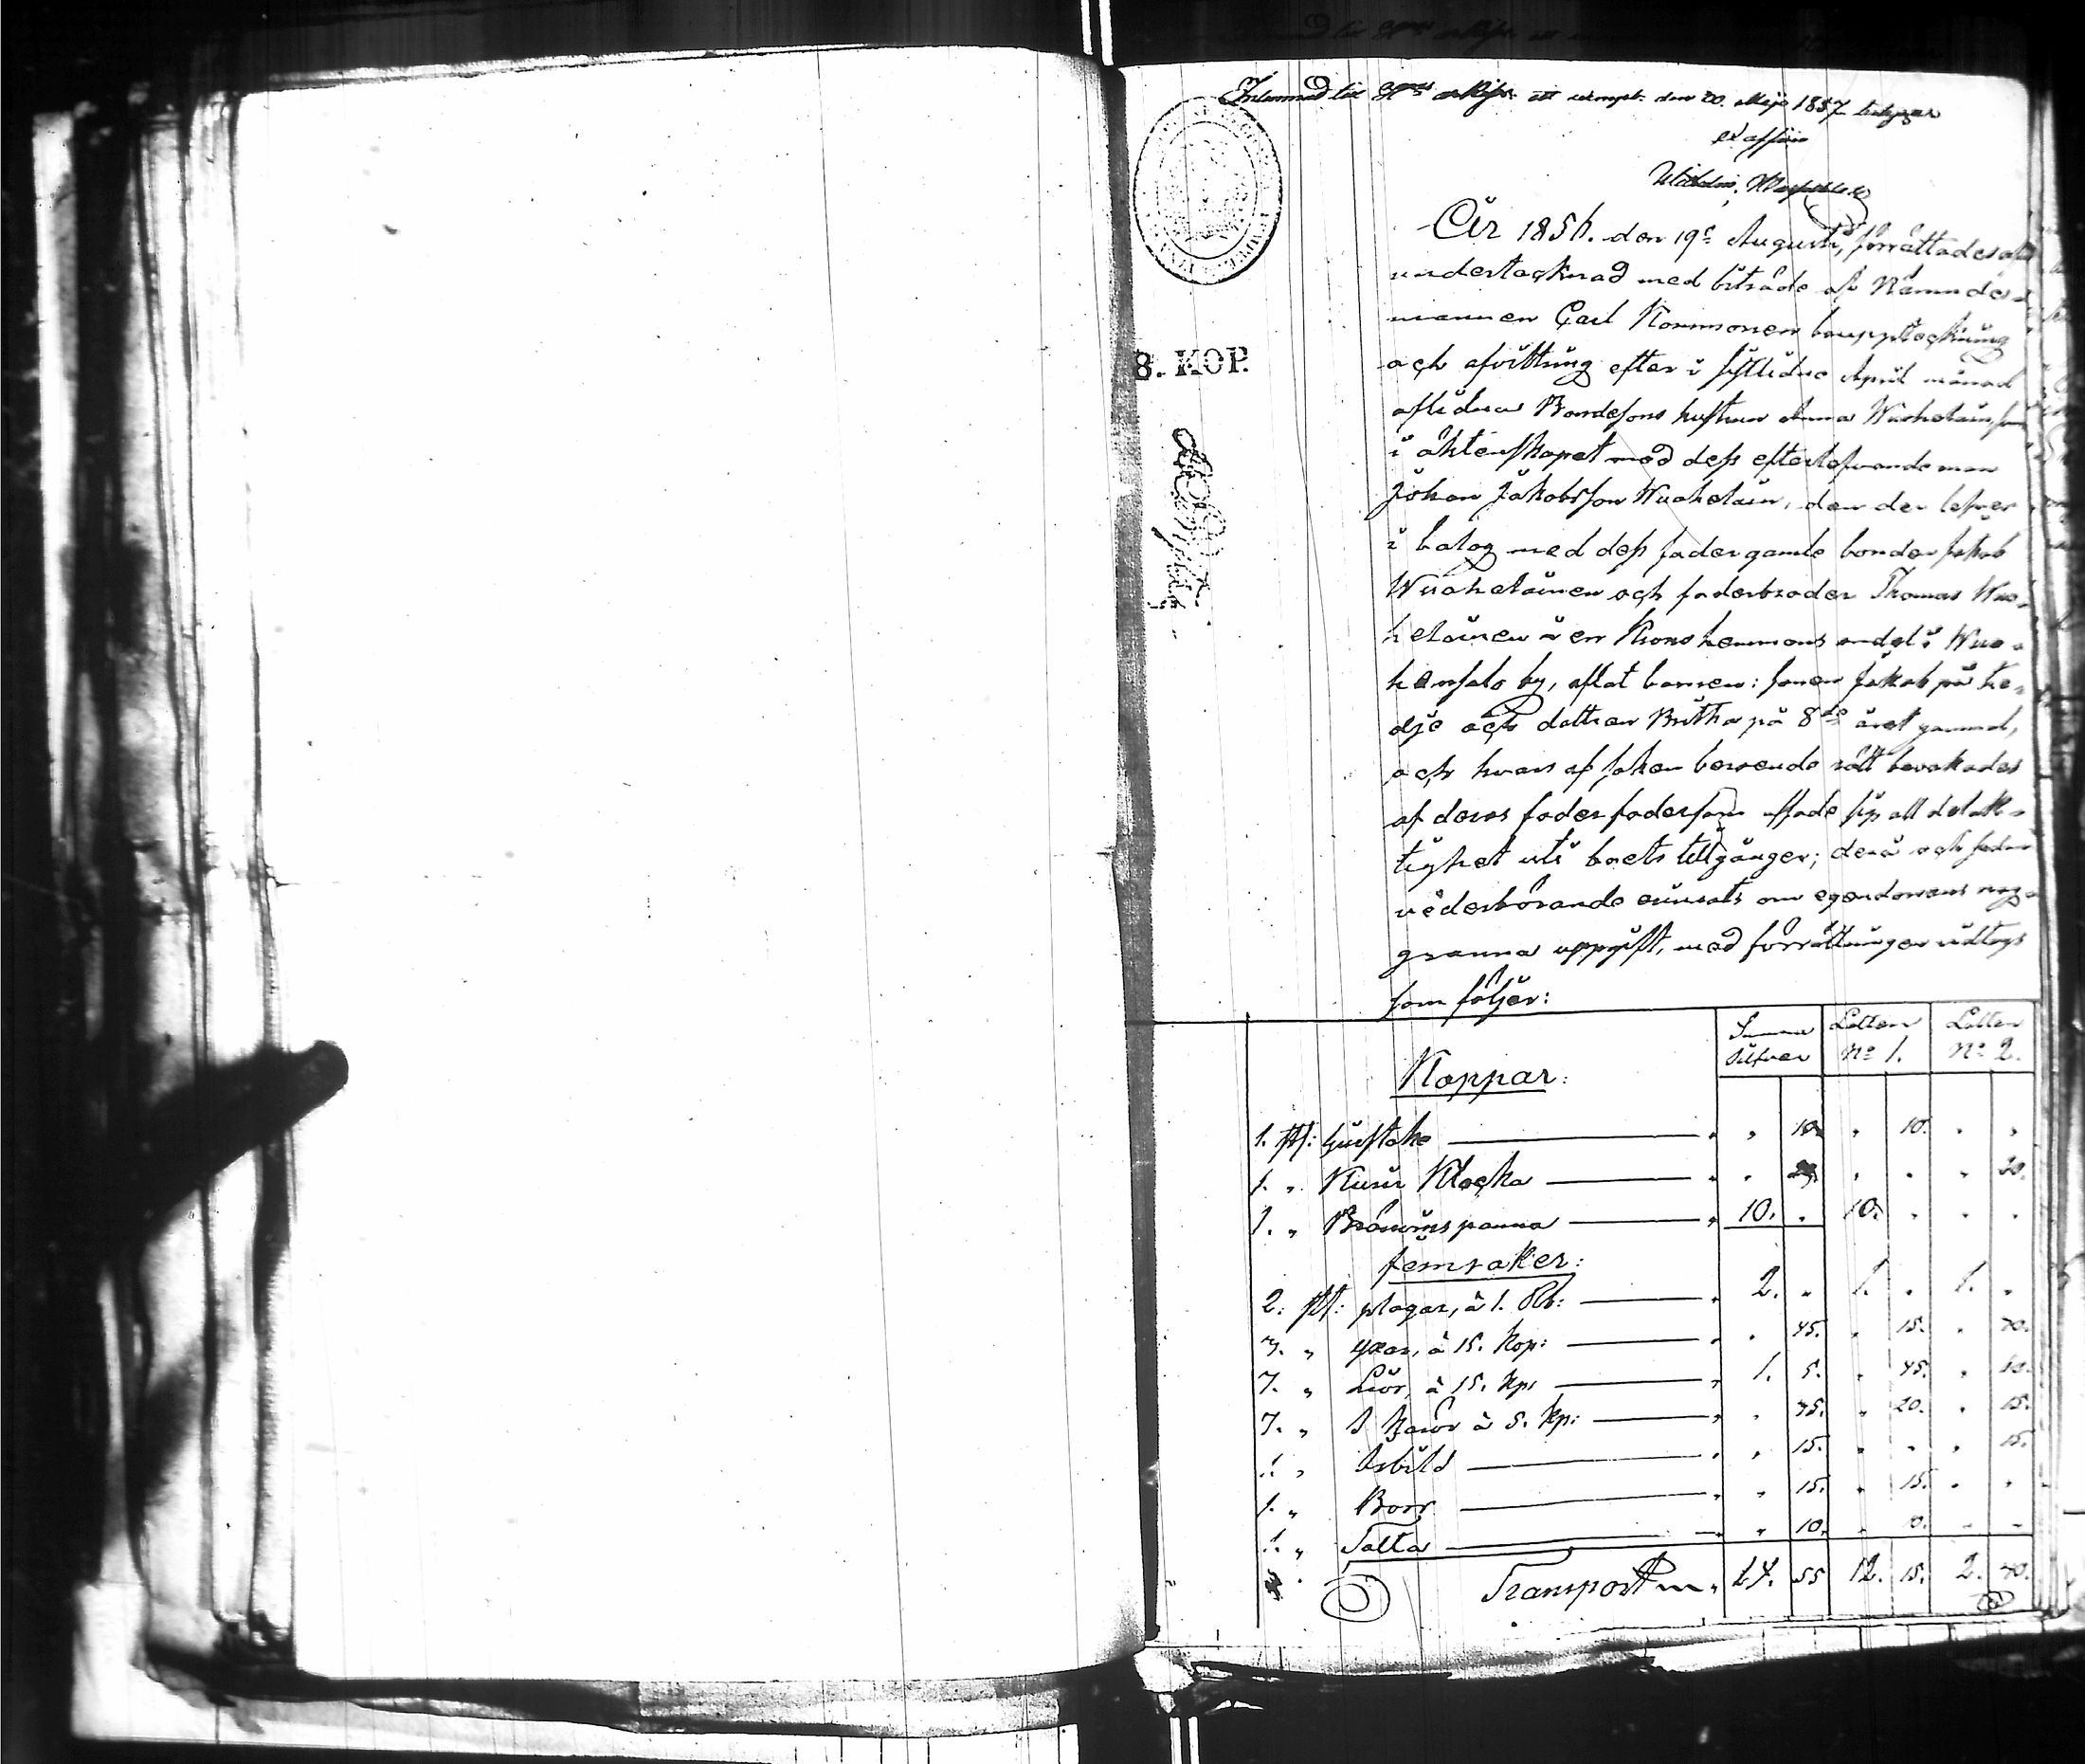 den 20. Maji 1857
ex officio
År 1856. den 19de Augusti, förrättades af
undertecknad med biträde af Nämnde-
mannen Carl Kommonen bouppteckning
8. KOP.
och afvittring efter i sistlidne April månad
aflidna Bondesons hustrun Anna Wuohelain, som
i äktenskapet med dess efterlefvande man
Johan Jakobsson Wuohelain, den der lefver
i bolag med dess fader gamle bonden Jakob
Wuohelainen och faderbroder Thomas Wuo-
helainen å en Krono hemmans andel i Wuo-
hensalo by, aflat barnen: sonen Jakob på tre-
dje och dottren Britha på 8de året gammal,
och hvars af saken beroende rätt bevakades
af deras faderfader som afsade sig all delak-
tighet uti boets tillgånger; derå och sedan
vederbörande erinrats om egendomens nog-
granna uppgift, med förrättningen vidtogs
som följer:
Summa Silfver Lotten No 1. Lotten No 2.
Koppar:
1. st: Ljusstake " " 10. " 10. " "
1. " Klocka " " " " " 20.
1. " Bränvins panna " 10. " 10. " " "
Jernsaker:
2. st: plogar, à 1. Rb: " 2. " 1. " 1. "
3. " yxar, à 15. Kop: " " 45. " 15. " 30.
7. " Liör, à 15. Kp: " 1. 5. " 45. " 60.
7. " Skäror à 5. Kp: " " 35. " 20. " 15.
1. " Isbill " " 15. " " " 15.
1. " Borr " " 15. " 15. " "
1. " " " 10. " 10. " "
Transport 55 12. 15. 2. 40.